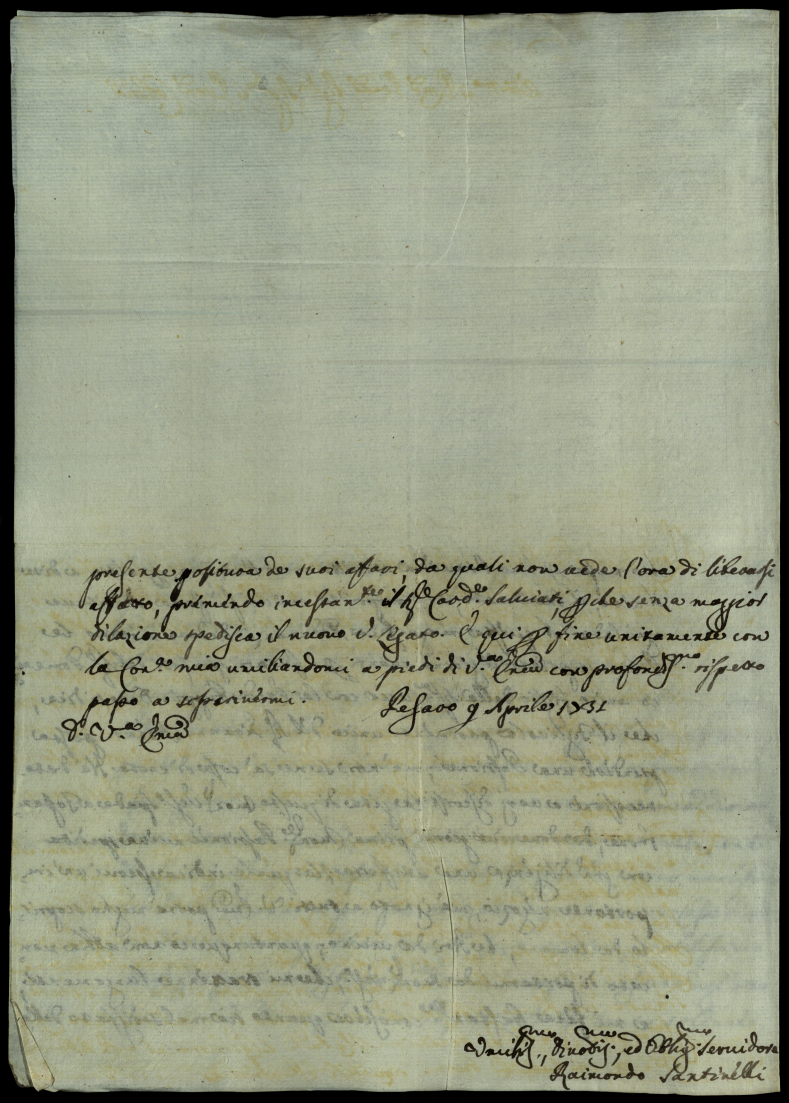 presente positura de suoi affari, da quali non vede l'ora di liberarsi
affatto, primendo incestan.te il Sig.e Card.e Salviati, perche senza maggior
dilazione spedisca il nuovo V. Legato. E qui per fine unitamente con
la Con.te mia umiliandomi a piedi di V.ra Em.za con profondiss.mo rispetto
passo a rafferirmi. Pesaro 9 Aprile 1731
D. V.a Em.za
Umiliss.mo, Divotiss.mo, ed Obblig.mo Servidore
Raimondo Santinelli